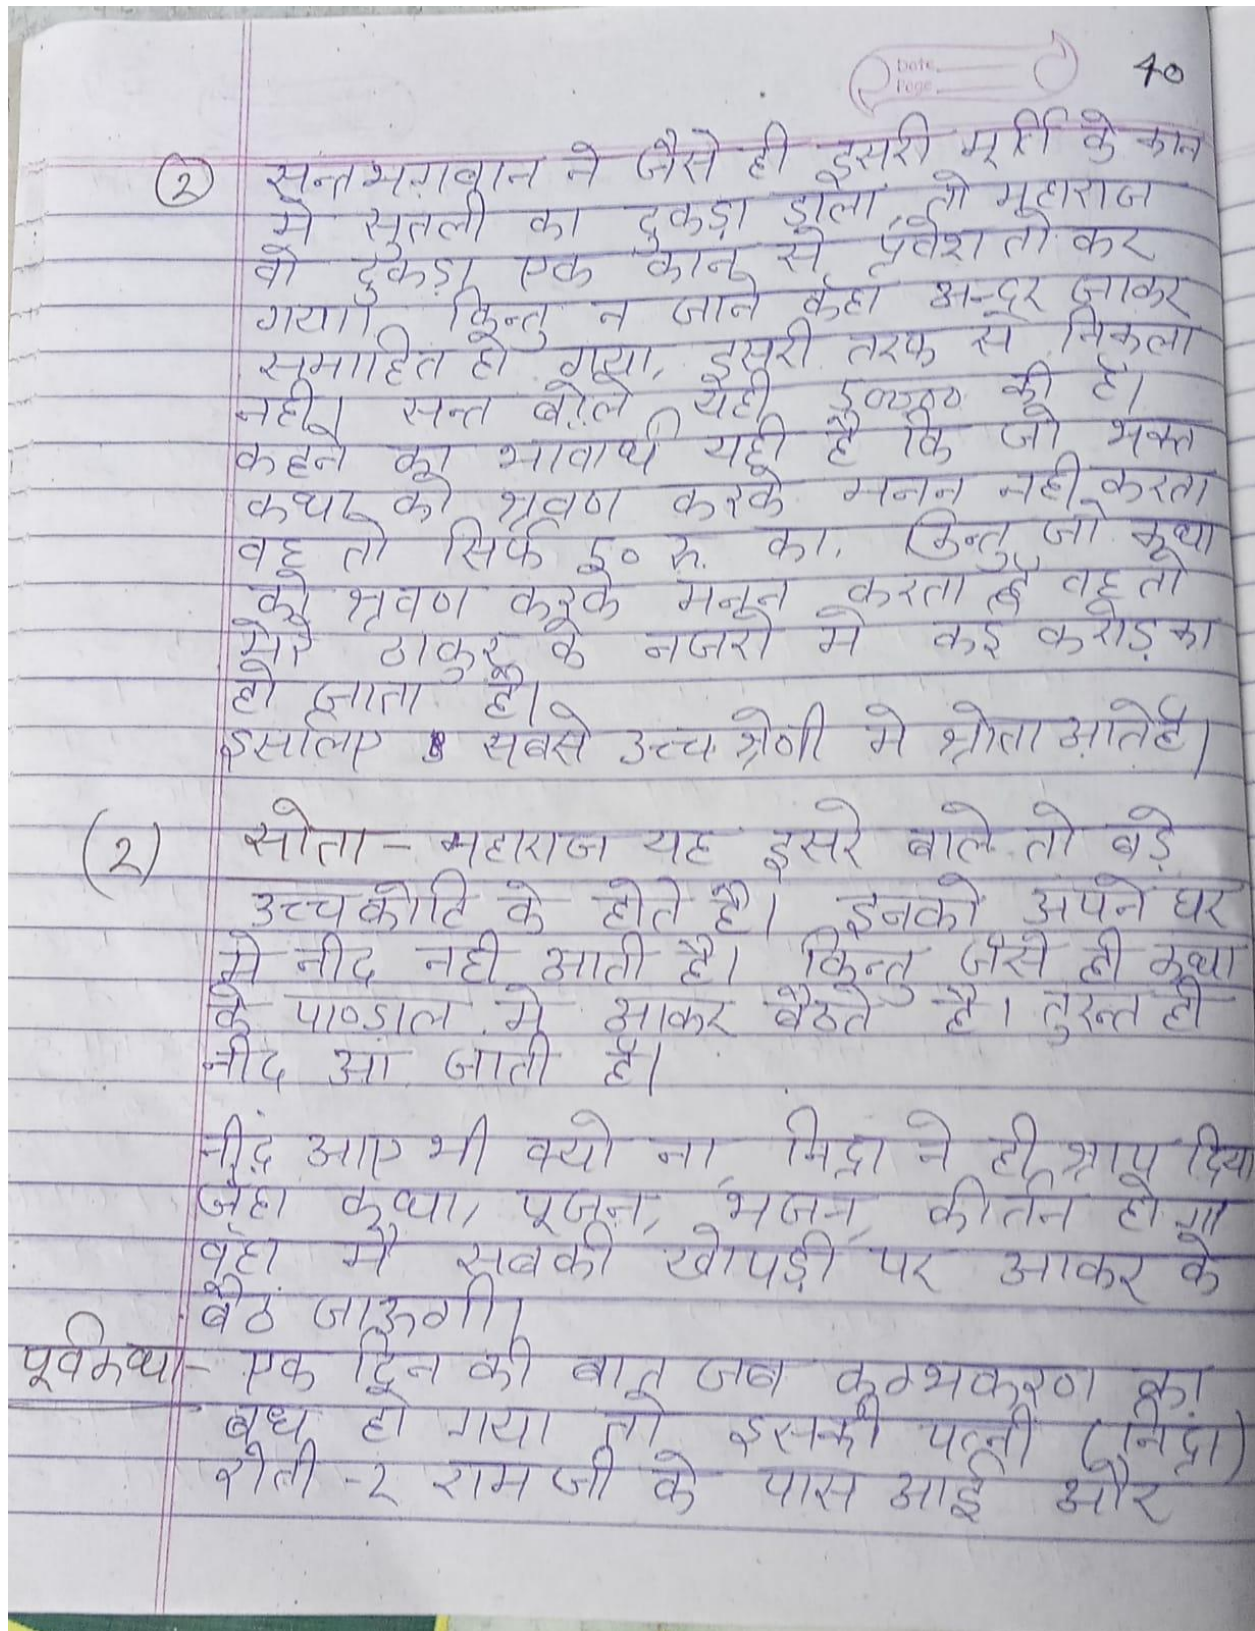 Date
Page
40
② सन्तभगवान ने जैसे ही दुसरी मूर्ती के कान
मे सुतली का टुकड़ा डाला, तो महाराज
वो टुकड़ा एक कान से प्रवेश तो कर
गया। किन्तु न जाने कहाँ अन्दर जाकर
समाहित हो गया, दुसरी तरफ से निकला
नही। सन्त बोले यही की है।
कहने का भावार्थ यही है कि जो भक्त
कथा को श्रवण करके मनन नही करता
वह तो सिर्फ ५० रु. का, किन्तु जो कथा
को श्रवण करके मनन करता है वह तो
मेरे ठाकुर के नजरो मे कई करोड़ का
हो जाता है।
इसलिए सबसे उच्च श्रेणी मे श्रोता आते है।
(२) सोता - महाराज यह दुसरे वाले तो बड़े
उच्चकोटि के होते है। इनको अपने घर
मे नीद नही आती है। किन्तु जैसे ही कथा
के पाण्डाल मे आकर बैठते है। तुरन्त ही
नीद आ जाती है।
नीद आए भी क्यो ना, निद्रा ने ही श्राप दिया
जहा कथा, पूजन, भजन, कीर्तन होगा
वहा मै सबकी खोपड़ी पर आकर के
बैठ जाऊगी।
पूर्वकथा - एक दिन की बात जब कुम्भकरण का
बध हो गया तो इसकी पत्नी (निद्रा)
रोती -२ राम जी के पास आई और